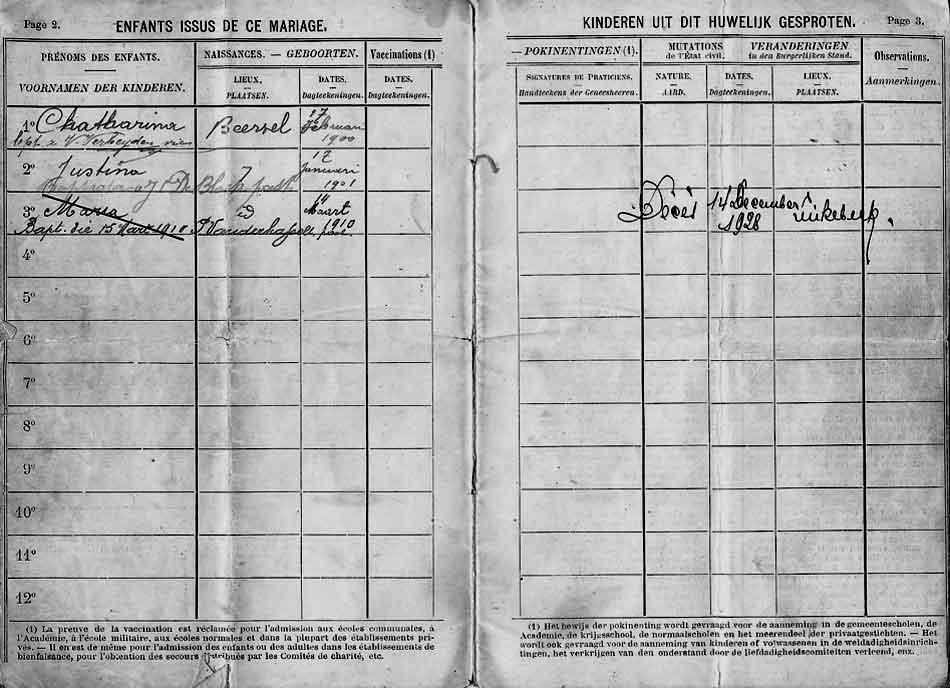 Page 2.
ENFANTS ISSUS DE CE MARIAGE.
PRÉNOMS DES ENFANTS.
VOORNAMEN DER KINDEREN.
NAISSANCES. — GEBOORTEN.
LIEUX.
PLAATSEN.
DATES.
Dagteekeningen.
Vaccinations (1)
DATES.
Dagteekeningen.
1º Chatharina
Beersel
17
Februari
1900
V. Verheyden
2º Justina
id
12
Januari
1901
past.
3º Maria
id
11
Maart
1910
Bapt. die 15 Mart. 1910
past.
4º
5º
6º
7º
8º
9º
10º
11º
12º
(1) La preuve de la vaccination est réclamée pour l'admission aux écoles communales, à
l'Académie, à l'école militaire, aux écoles normales et dans la plupart des établissements pri-
vés. — Il en est de même pour l'admission des enfants ou des adultes dans les établissements de
bienfaisance, pour l'obtention des secours distribués par les Comités de charité, etc.
KINDEREN UIT DIT HUWELIJK GESPROTEN.
Page 3.
— POKINENTINGEN (1).
SIGNATURES DE PRATICIENS.
Handteekens der Geneesheeren.
MUTATIONS
de l'État civil.
VERANDERINGEN
in den Burgerlijken Stand.
NATURE.
AARD.
DATES.
Dagteekeningen.
LIEUX.
PLAATSEN.
Observations.
Aanmerkingen.
Décès
14 December
1928
Linkebeek
(1) Het bewijs der pokinenting wordt gevraagd voor de aanneming in de gemeentescholen, de
Academie, de krijgsschool, de normaalscholen en het meerendeel der privaatgestichten. — Het
wordt ook gevraagd voor de aanneming van kinderen of volwassenen in de weldadigheidsinrich-
tingen, het verkrijgen van den onderstand door de liefdadigheidscomiteiten verleend, enz.